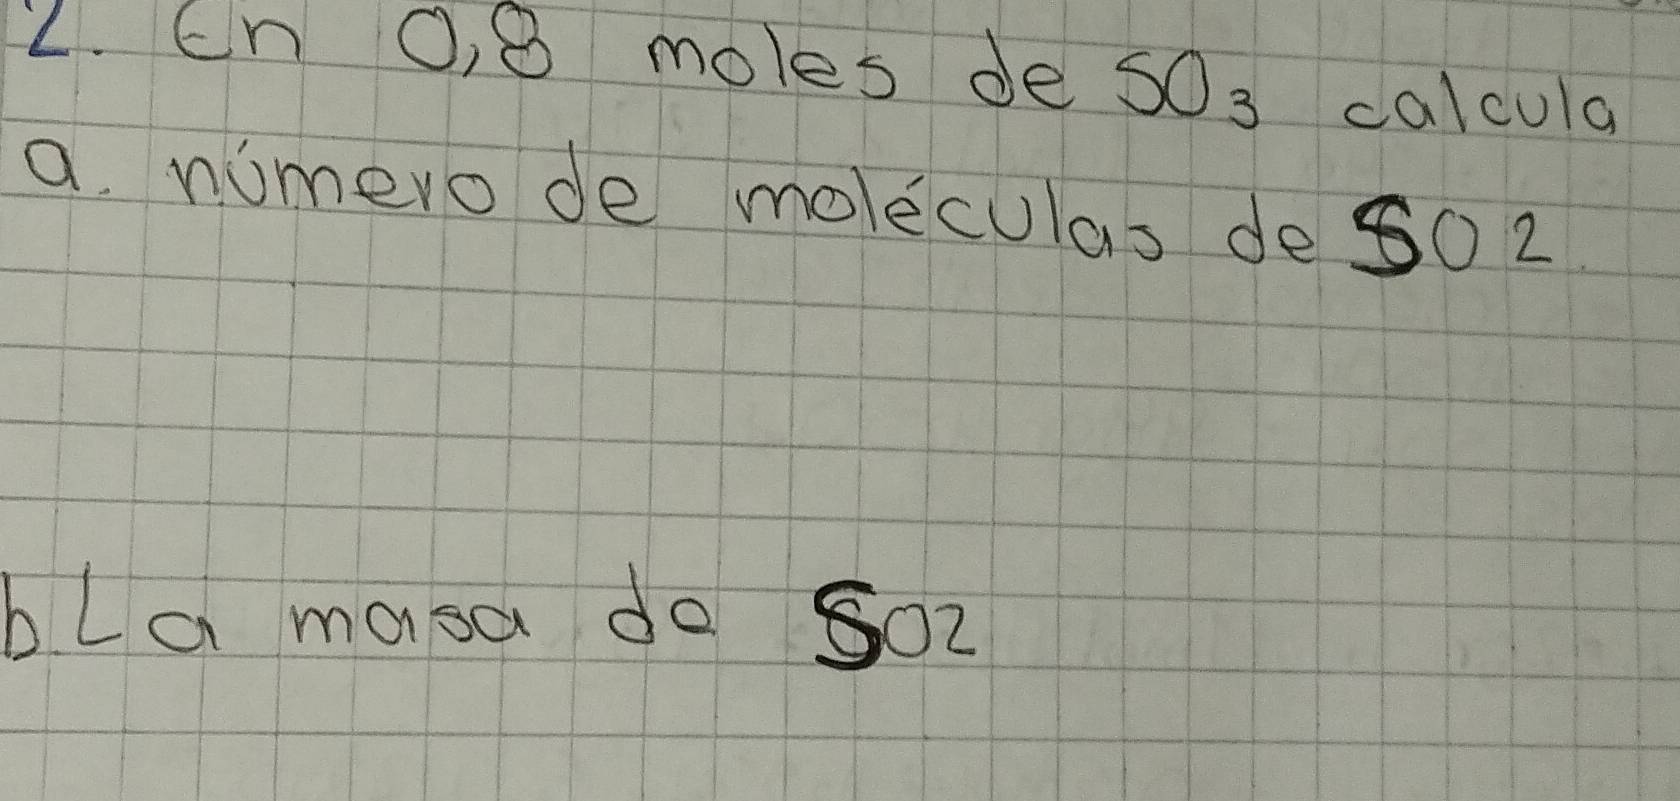 2. En 0,8 moles de SO₃ calcula
a. número de moléculas de SO2.
b. La masa de SO2